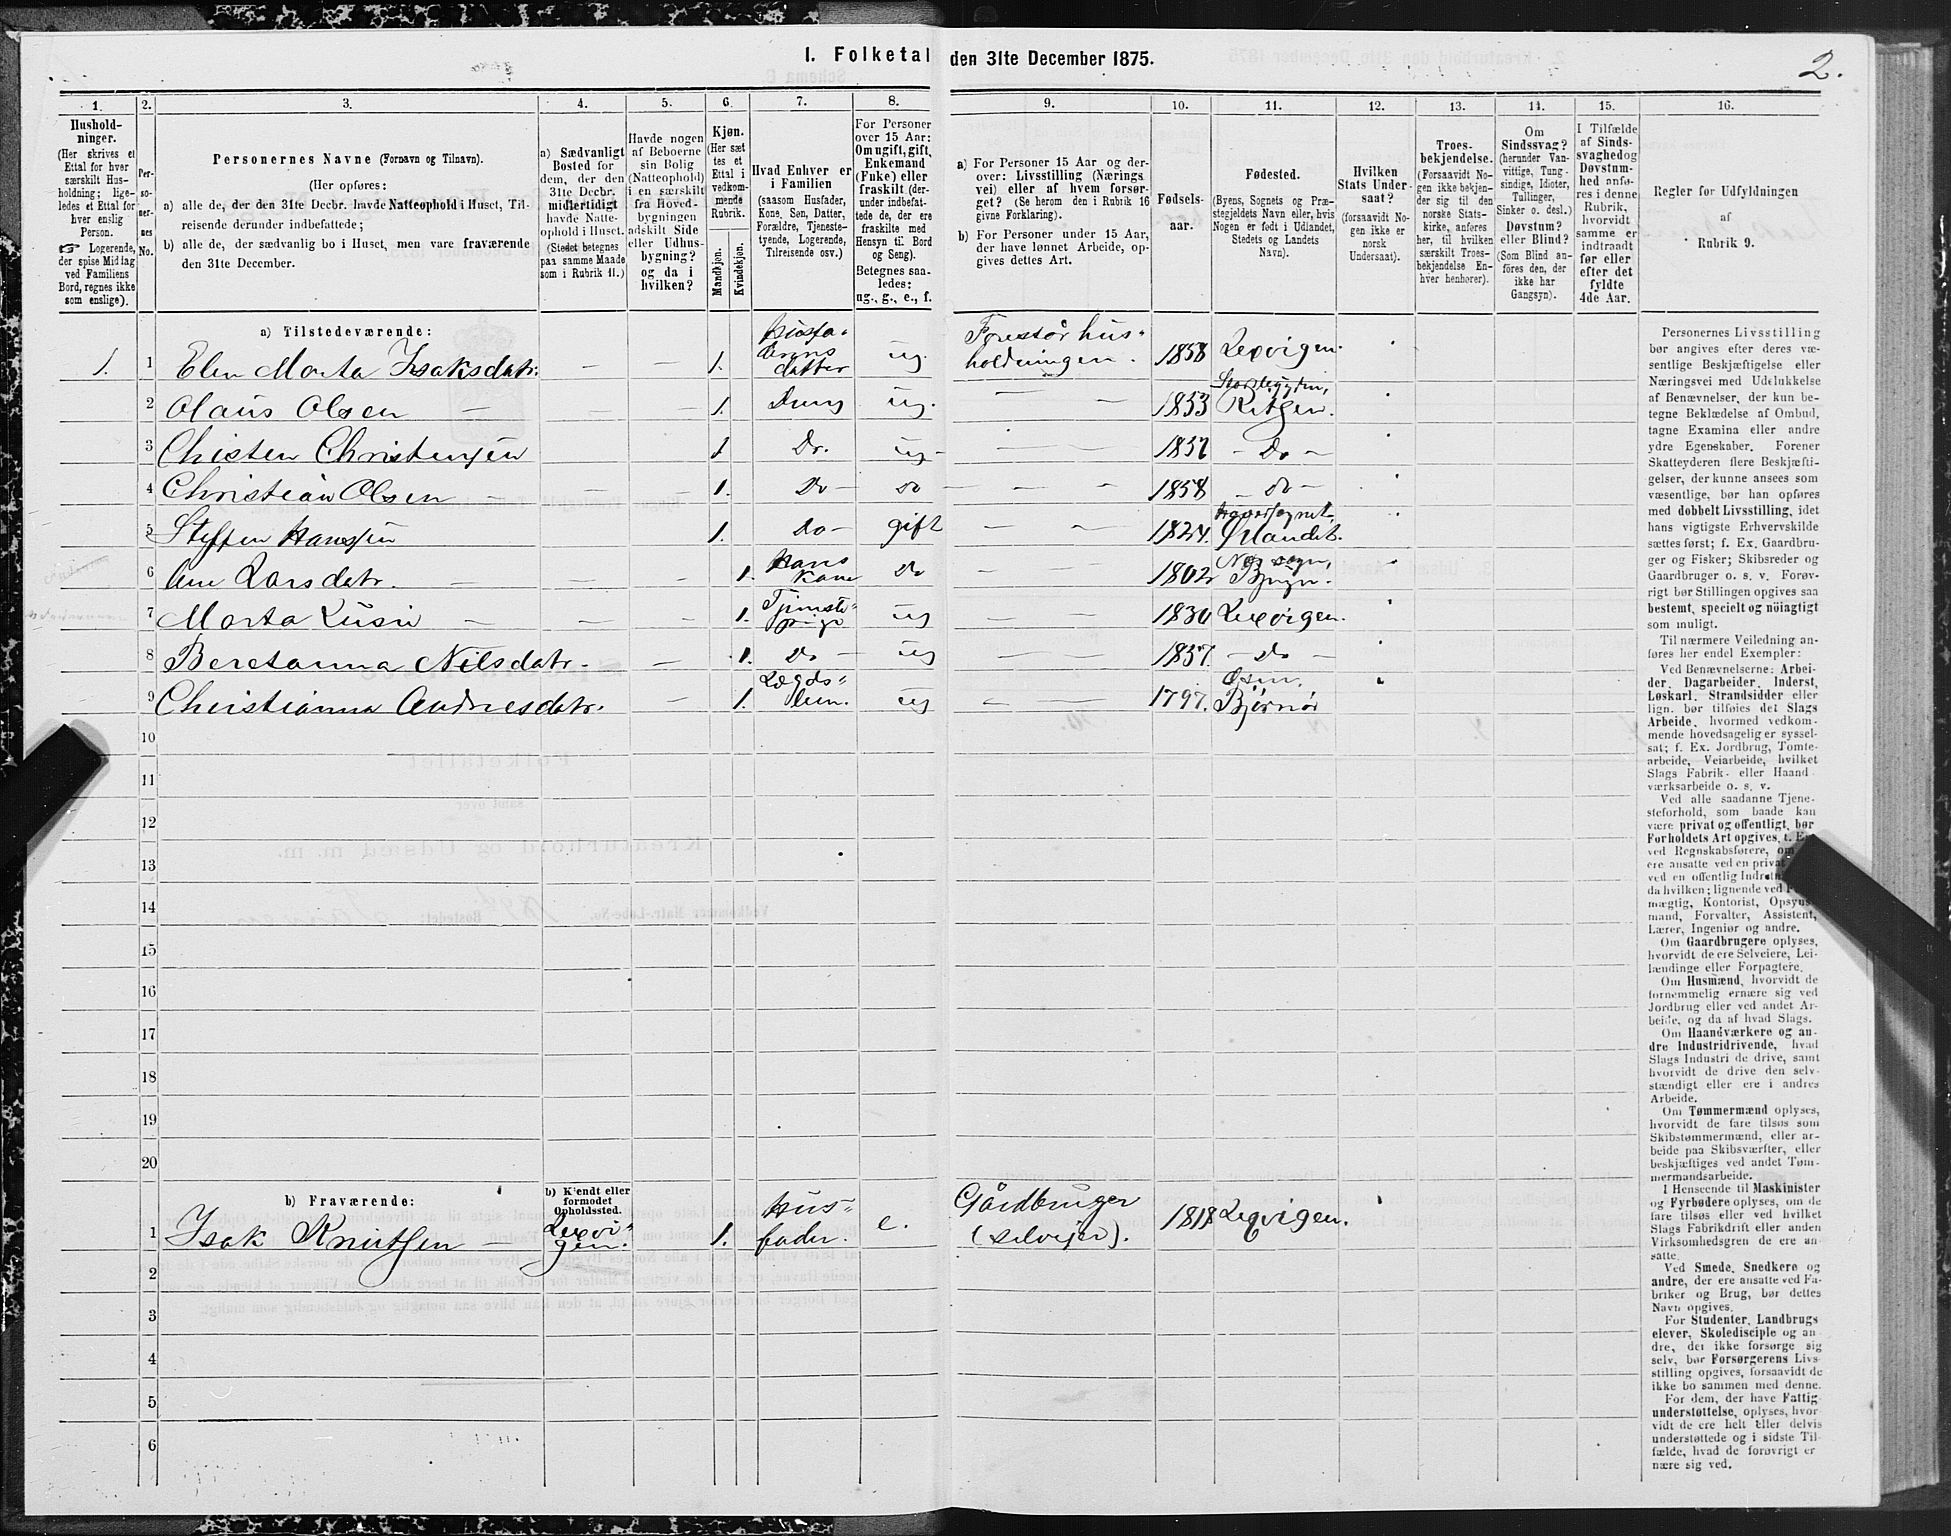 I. Folketal den 31te December 1875.
2.
1. 2. 3. 4. 5. 6. 7. 8. 9. 10. 11. 12. 13. 14. 15. 16.
Hushold-
ninger.
(Her skrives et
Ettal for hver
særskilt Hus-
holdning; lige-
ledes et Ettal for
hver enslig
Person.
Logerende,
der spise Middag
ved Familiens
Bord, regnes ikke
som enslige).
Per-
so-
ner-
nes
No.
Personernes Navne (Fornavn og Tilnavn).
(Her opføres:
a) alle de, der den 31te Decbr. havde Natteophold i Huset, Til-
reisende derunder indbefattede;
b) alle de, der sædvanlig bo i Huset, men vare fraværende
den 31te December.
a) Sædvanligt
Bosted for
dem, der den
31te Decbr.
midlertidigt
havde Natte-
ophold i Huset.
(Stedet betegnes
paa samme Maade
som i Rubrik 11.)
Havde nogen
af Beboerne
sin Bolig
(Natteophold)
i en særskilt
fra Hoved-
bygningen
adskilt Side
eller Udhus-
bygning?
og da i
hvilken?
Kjøn.
(Her sæt
tes et
Ettal i
vedkom-
mende
Rubrik.
Mandkjøn.
Kvindekjøn.
Hvad Enhver er
i Familien
(saasom Husfader,
Kone, Søn, Datter,
Forældre, Tjeneste-
tyende, Logerende,
Tilreisende osv.)
For Personer
over 15 Aar:
Om ugift, gift,
Enkemand
(Enke) eller
fraskilt (der-
under indbefat-
tede de, der ere
fraskilte med
Hensyn til Bord
og Seng).
Betegnes saa-
ledes:
ug., g., e., f.
a) For Personer 15 Aar og der-
over: Livsstilling (Nærings
vei) eller af hvem forsør-
get? (Se herom den i Rubrik 16
givne Forklaring).
b) For Personer under 15 Aar,
der have lønnet Arbeide, op-
gives dettes Art.
Fødsels-
aar.
Fødested.
(Byens, Sognets og Præ-
stegjeldets Navn eller, hvis
Nogen er født i Udlandet,
Stedets og Landets
Navn).
Hvilken
Stats Under-
saat?
(forsaavidt No-
gen ikke er
norsk
Undersaat).
Troes-
bekjendelse.
(Forsaavidt No-
gen ikke bekjen-
der sig til den
norske Stats-
kirke, anføres
her, til hvilken
særskilt Troes-
bekjendelse En-
hver henhører).
Om
Sindssvag?
(herunder Van-
vittige, Tung-
sindige, Idioter,
Tullinger,
Sinker o. desl.)
Døvstum?
eller Blind?
(Som Blind an-
føres den, der
ikke har
Gangsyn).
I Tilfælde
af Sinds-
svaghed og
Døvstum-
hed anfø-
res i denne
Rubrik,
hvorvidt
samme er
indtraadt
før eller
efter det
fyldte
4de Aar.
Regler for Udfyldningen
af
Rubrik 9.
a) Tilstedeværende:
1. 1 Elen Marta Isaksdatr. 1. Husfa-
derens
datter ug. Forestår hus-
holdningen. 1858 Lexvigen.
2 Olaus Olsen 1. Dreng ug. 1853 Ritsen.
3 Chisten Christensen 1 Do. ug 1857 - Do -
4 Christian Olsen 1. Do do 1858 - do -
5 Steffen Hansen 1. Do gift 1824. Ørlandet.
6 Ane Larsdatr. 1. Hans
Kone Do 1802 Næs sogn,
Bjugn.
7 Marta Lusie 1. Tjeneste-
pige ug 1830 Lexvigen.
8 Beretanna Nilsdatr. 1. Do ug 1857. - Do -
9 Christianna Andresdatr. 1. Lægds-
lem. ug 1797. Osen.
Bjørnør
10
11
12
13
14
15
16
17
18
19
20
b) Fraværende:
b) Kjendt eller
formodet
Opholdssted.
1 Isak Knutsen Lexvi-
gen. 1. Hus-
fader. e. Gårdbruger
(selveier). 1818 Lexvigen.
2
3
4
5
6
Personernes Livsstilling
bør angives efter deres væ-
sentlige Beskjæftigelse eller
Næringsvei med Udelukkelse
af Benævnelser, der kun be-
tegne Beklædelse af Ombud,
tagne Examina eller andre
ydre Egenskaber. Forener
Skatteyderen flere Beskjæfti-
gelser, der kunne ansees som
væsentlige, bør han opføres
med dobbelt Livsstilling, idet
hans vigtigste Erhvervskilde
sættes først; f. Ex. Gaardbru-
ger og Fisker; Skibsreder og
Gaardbruger o. s. v. Forøv-
rigt bør Stillingen opgives saa
bestemt, specielt og nöiagtigt
som muligt.
Til nærmere Veiledning an-
føres her endel Exempler:
Ved Benævnelserne: Arbei-
der, Dagarbeider, Inderst,
Løskarl, Strandsidder eller
lign. bør tilføies det Slags
Arbeide, hvormed vedkom-
mende hovedsagelig er syssel-
sat; f. Ex. Jordbrug, Tomte-
arbeide, Veiarbeide, hvilket
Slags Fabrik- eller Haand
værksarbeide o. s. v.
Ved alle saadanne Tjene-
steforhold, som baade kan
være privat og offentligt, bør
Forholdets Art opgives, t. Ex.
ved Regnskabsførere, om
ere ansatte ved en privat
ved en offentlig Indretn
da hvilken; lignende ved
mægtig, Kontorist, Opsyns
mand, Forvalter, Assistent,
Lærer, Ingeniør og andre.
Om Gaardbrugere oplyses,
hvorvidt de ere Selveiere, Lei-
lændinge eller Forpagtere.
Om Husmænd, hvorvidt de
fornemmelig ernære sig ved
Jordbrug eller ved andet Ar-
beide, og da af hvad Slags.
Om Haandværkere og an-
dre Industridrivende, hvad
Slags Industri de drive, samt
hvorvidt de drive den selv-
stændigt eller ere i andres
Arbeide.
Om Tømmermænd oplyses,
hvorvidt de fare tilsøs som
Skibstømmermænd, eller ar-
beide paa Skibsværfter, eller
beskjæftiges ved andet Tøm-
mermandsarbeide.
I Henseende til Maskinister
og Fyrbødere oplyses, om de
fare tilsøs eller ved hvilket
Slags Fabrikdrift eller anden
Virksomhedsgren de ere an-
satte.
Ved Smede, Snedkere og
andre, der ere ansatte ved Fa-
briker og Brug, bør dettes
Navn opgives.
For Studenter, Landbrugs
elever, Skoledisciple og an
dre, der ikke forsørge sig
selv, bør Forsørgerens Livs-
stilling opgives, forsaavidt de
ikke bo sammen med denne.
For dem, der have Fattig
understøttelse, oplyses, hvor-
vidt de ere helt eller delvis
understøttede og i sidste Til-
fælde, hvad de forøvrigt er
nære sig ved.